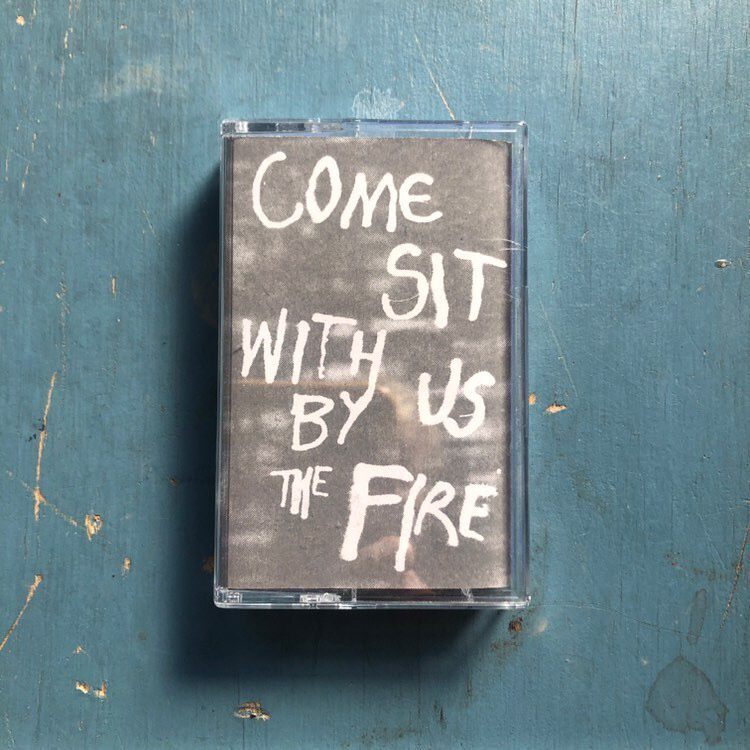 COME
SIT
WITH US
BY
THE FIRE